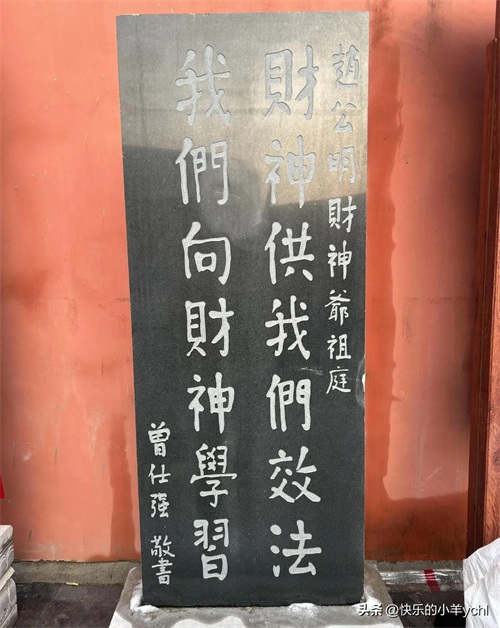 趙公明財神爺祖庭
財神供我們效法
我們向財神學習
曾仕强 敬書
头条@快乐的小羊ychl